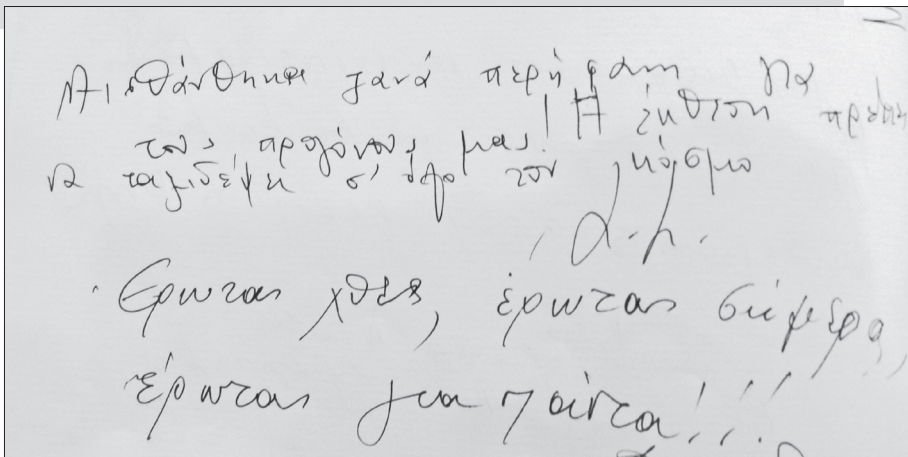 Αισθάνθηκα ξανά περήφανη για
τους προγόνους μας! Η έκθεση πρέπει
να ταξιδέψει σ' όλο τον κόσμο
Α.μ.
Έρωτας χθες, έρωτας σήμερα,
έρωτας για πάντα!!!